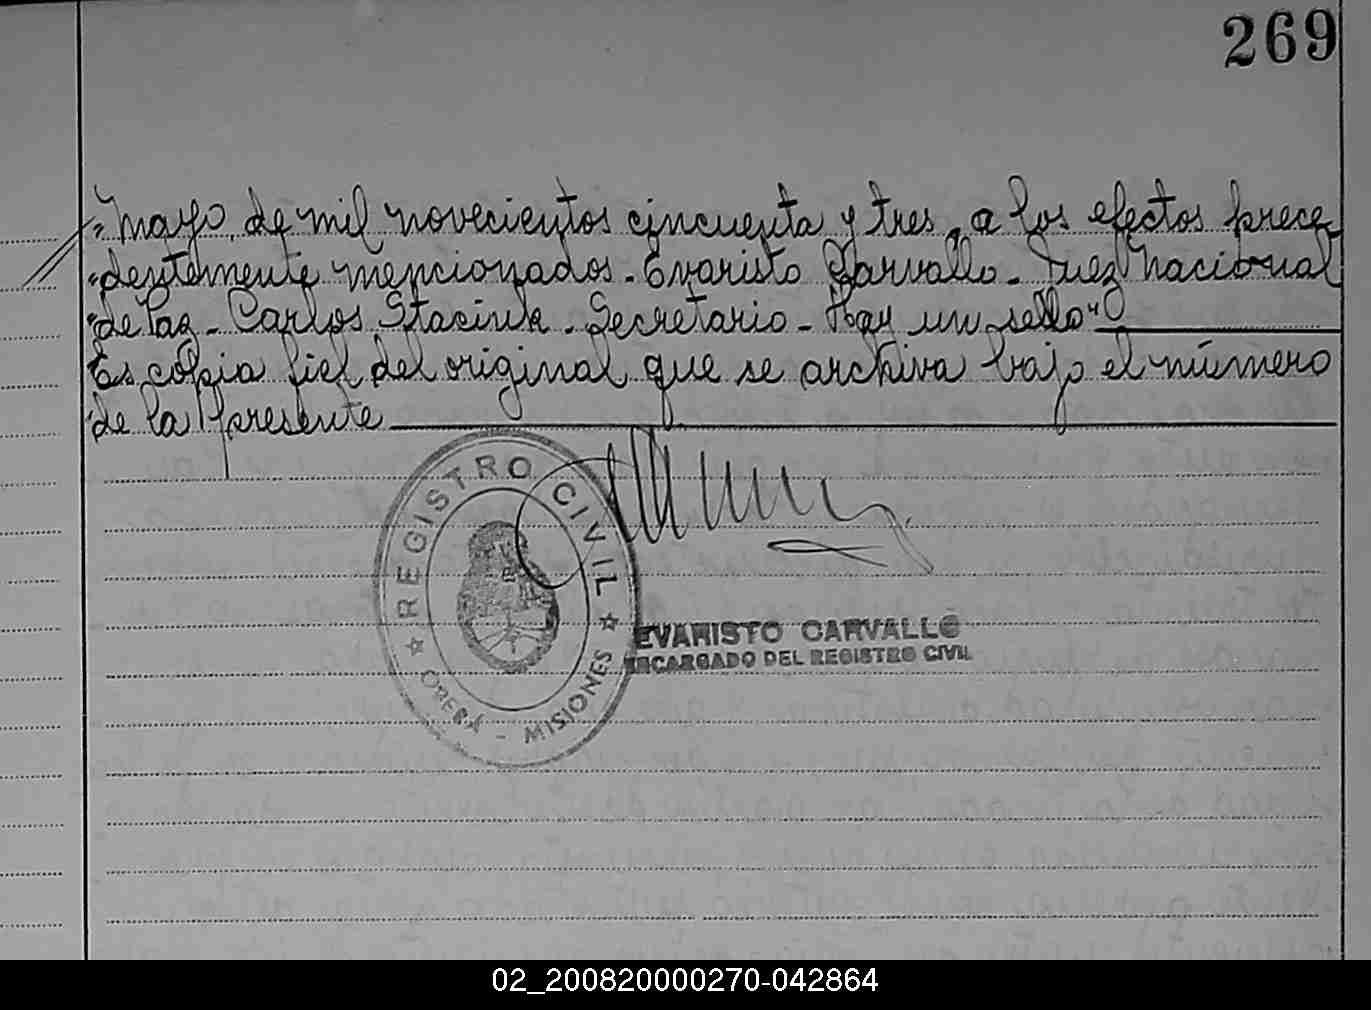 269
"mayo, de mil novecientos cincuenta y tres, a los efectos prece-
"dentemente mencionados. Evaristo Carvallo. Juez Nacional
"de Paz. Carlos Secretario. Hay un sello"
Es copia fiel del original que se archiva bajo el número
de la presente
REGISTRO CIVIL
OBERÁ - MISIONES
EVARISTO CARVALLO
ENCARGADO DEL REGISTRO CIVIL
02_200820000270-042864